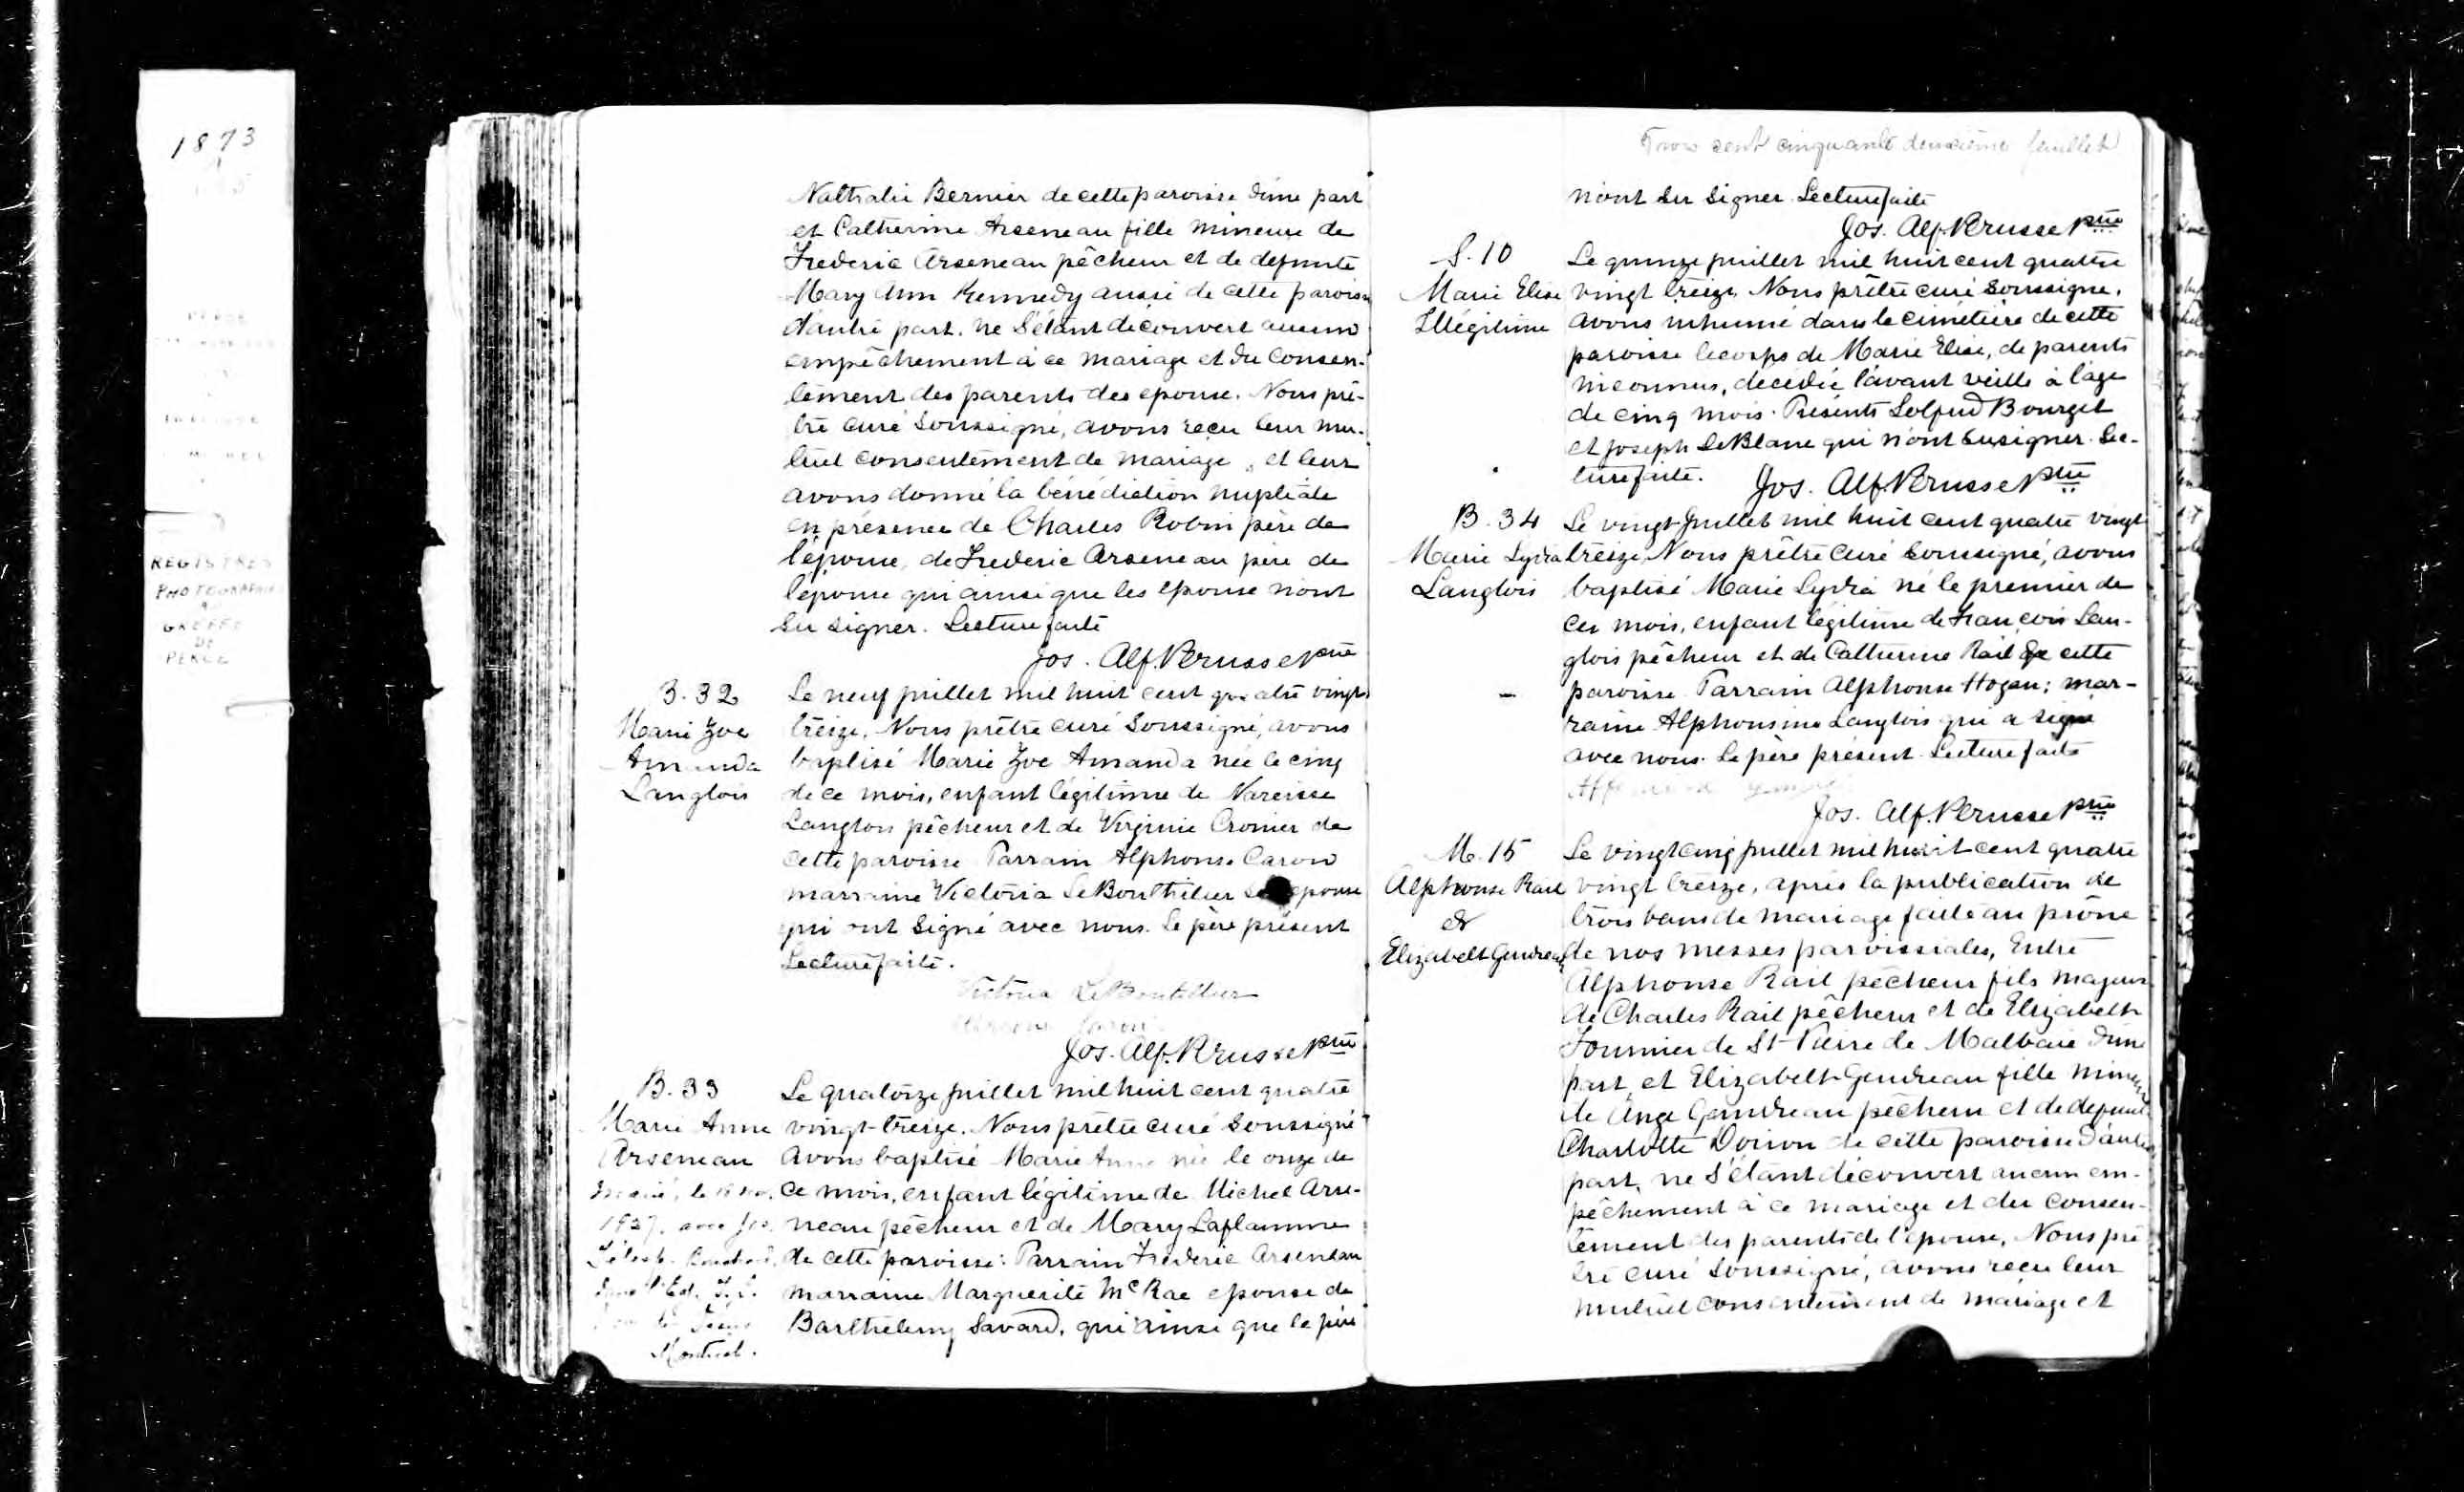 1873
REGISTRES
PHOTOGRAPHIÉS
AU
GREFFE
DE
PERCÉ
Nathalie Bernier de cette paroisse d'une part
et Catherine Arseneau fille mineure de
Frederic Arseneau pêcheur et de defunte
Mary Ann Kennedy aussi de cette paroisse
d'autre part. ne s'étant découvert aucun
empêchement à ce mariage et du consen-
tement des parents des epoux. Nous prê-
tre curé soussigné, avons reçu leur mu-
tuel consentement de mariage, et leur
avons donné la bénédiction nuptiale
en présence de Charles Robin père de
l'époux, de Frederic Arseneau pere de
l'épouse qui ainsi que les epoux n'ont
su signer. Lecture faite
Jos. Alf. Perusse Ptre
B. 32
Marie Zoe
Amanda
Langlois
Le neuf juillet mil huit cent quatre vingt
treize, Nous prêtre curé soussigné, avons
baptisé Marie Zoe Amanda née le cinq
de ce mois, enfant légitime de Narcisse
Langlois pêcheur et de Virginie Cronier de
cette paroisse Parrain Alphonse Caron
marraine Victoria LeBouthilier epouse
qui ont signé avec nous. Le père présent
Lecture faite.
Victoria LeBoutillier
Jos. Alf. Perusse Ptre
B. 33
Marie Anne
Arseneau
1927. avec Jos.
Montreal.
Le quatorze juillet mil huit cent quatre
vingt-treize. Nous prêtre curé soussigné
Avons baptisé Marie Anne née le onze de
ce mois, enfant légitime de Michel Arse-
neau pêcheur et de Mary Laflamme
de cette paroisse: Parrain Frederic Arseneau
marraine Marguerite McRae epouse de
Barthelemy Savard, qui ainsi que le père
Trois cent cinquante deuxième feuillet
n'ont su signer Lecture faite
Jos. Alf. Perusse Ptre
S. 10
Marie Elise
Illégitime
Le quinze juillet mil huit cent quatre
vingt treize, Nous prêtre curé soussigné,
avons inhumé dans le cimetière de cette
paroisse le corps de Marie Elise, de parents
inconnus, décédée l'avant veille à l'age
de cinq mois. Présents Bourget
et Joseph LeBlanc qui n'ont su signer. Lec-
ture faite.
Jos. Alf. Perusse Ptre
B. 34
Marie Lydia
Langlois
Le vingt juillet mil huit cent quatre vingt
treize, Nous prêtre curé soussigné, avons
baptisé Marie Lydia né le premier de
ces mois, enfant légitime de François Lan-
glois pêcheur et de Catherine Rail de cette
paroisse. Parrain Alphonse Hogan; mar-
raine Alphonsine Langlois qui a signé
avec nous. Le père présent. Lecture faite
Jos. Alf. Perusse Ptre
M. 15
Alphonse Rail
&
Elizabeth Gendreau
Le vingt cinq juillet mil huit cent quatre
vingt treize, après la publication de
trois bans de mariage faite au prône
de nos messes paroissiales, Entre
Alphonse Rail pêcheur fils majeur
de Charles Rail pêcheur et de Elizabeth
Fournier de St-Pierre de Malbaie d'une
part, et Elizabeth Gendreau fille mineure
de Ange Gendreau pêcheur et de defunte
Charlotte Doiron de cette paroisse d'autre
part, ne s'étant découvert aucun em-
pêchement à ce mariage et du consen-
tement des parents de l'épouse, Nous prê
tre curé soussigné, avons reçu leur
mutuel consentement de mariage et